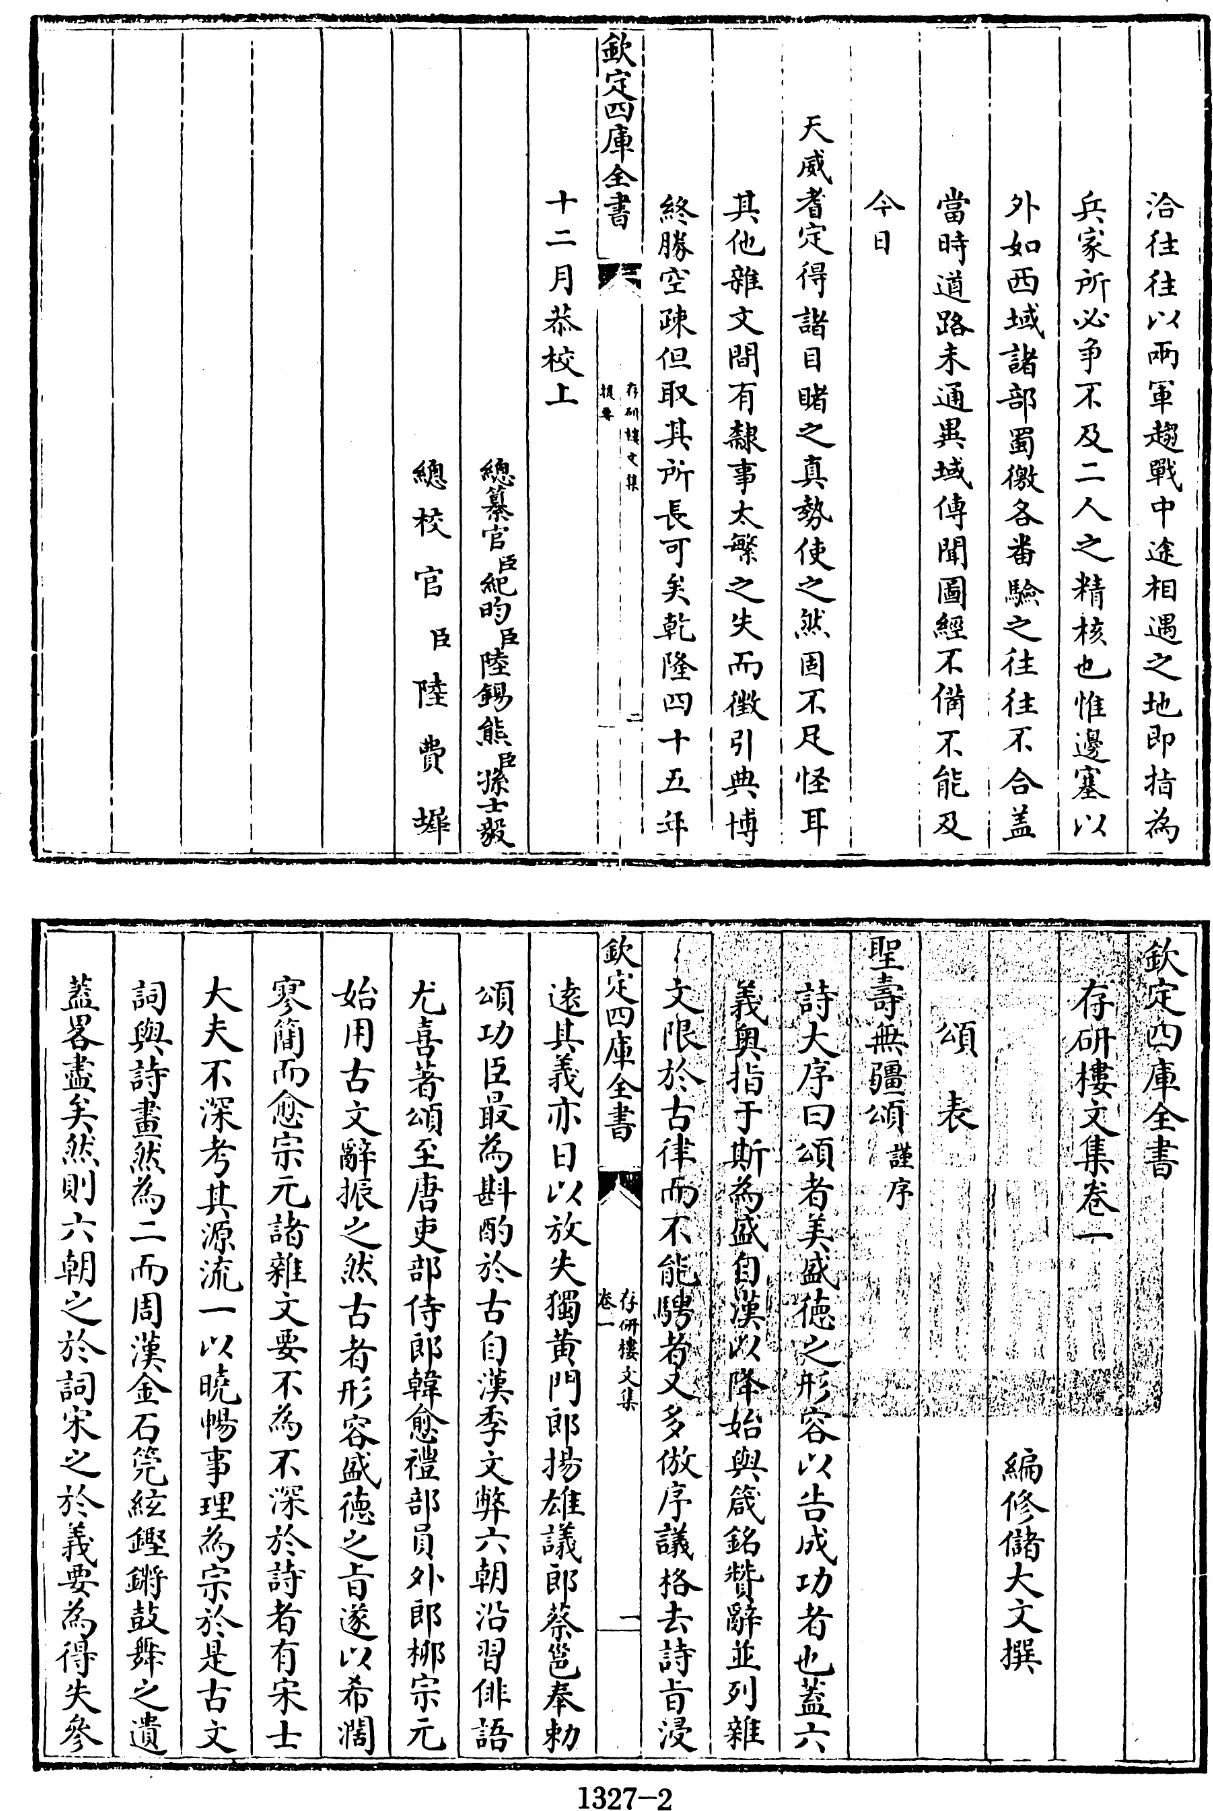 洽往往以兩軍趨戰中途相遇之地即指為
兵家所必争不及二人之精核也惟邊塞以
外如西域諸部蜀徼各番驗之往往不合盖
當時道路未通異域傳聞圖經不備不能及
今日
天威耆定得諸目睹之真勢使之然固不足怪耳
其他雜文間有隸事太繁之失而徵引典博
終勝空疎但取其所長可矣乾隆四十五年
欽定四庫全書
存研樓文集
提要
二
十二月恭校上
總纂官臣紀昀臣陸錫熊臣孫士毅
總校官臣陸費墀
欽定四庫全書
存研樓文集卷一
編修儲大文撰
頌表
聖壽無疆頌謹序
詩大序曰頌者美盛徳之形容以告成功者也蓋六
義奥指于斯為盛自漢以降始與箴銘贊辭並列雜
文限於古律而不能騁者又多倣序議格去詩旨浸
欽定四庫全書
存研樓文集
卷一
一
遠其義亦日以放失獨黄門郎揚雄議郎蔡邕奉勅
頌功臣最為斟酌於古自漢季文弊六朝沿習俳語
尤喜著頌至唐吏部侍郎韓愈禮部員外郎栁宗元
始用古文辭振之然古者形容盛徳之旨遂以希濶
寥簡而愈宗元諸雜文要不為不深於詩者有宋士
大夫不深考其源流一以曉暢事理為宗於是古文
詞與詩畫然為二而周漢金石筦絃鏗鏘鼓舞之遺
蓋畧盡矣然則六朝之於詞宋之於義要為得失參
1327-2